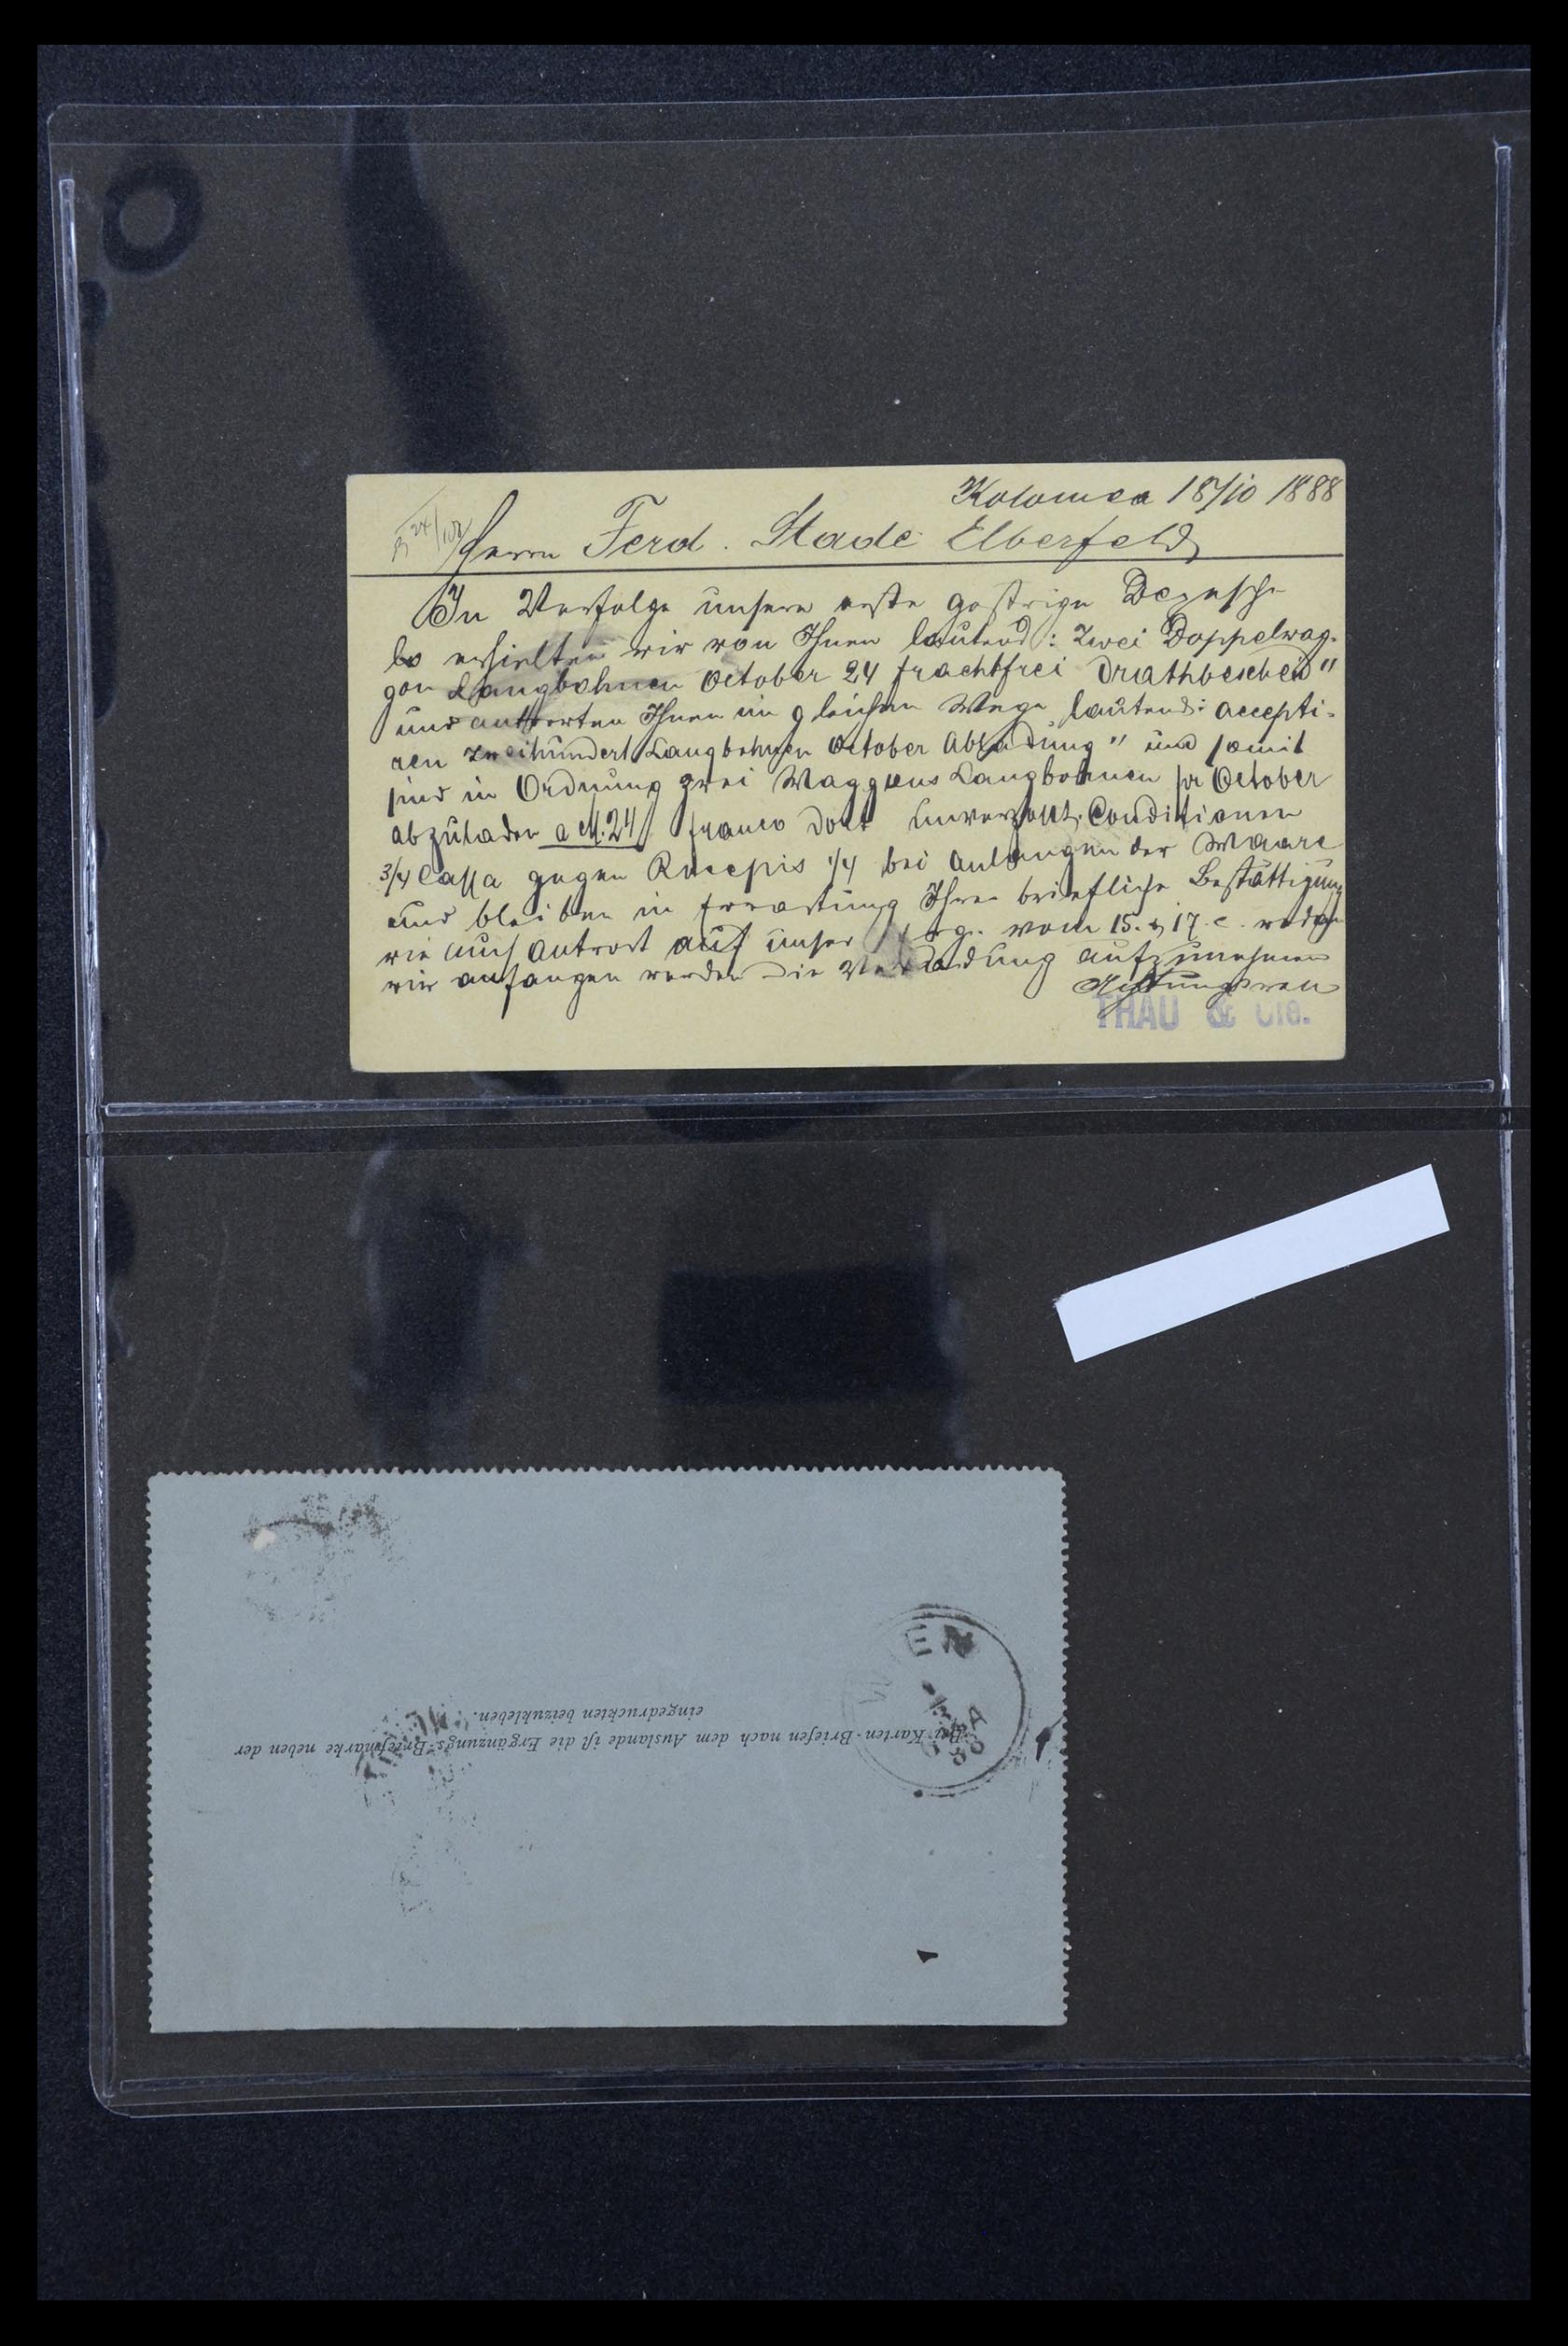 Kolomea 18/10 1888
Herrn Ferd. Stade Elberfeld
In Verfolge unsere erste gestrige Depesche
erhielten wir von Ihnen lautend: Zwei Doppelwag-
gon Langbohnen October 24 frachtfrei Drathbescheid"
und antworten Ihnen im gleichen Wege lautend: accepti-
ren zweihundert Langbohnen October Abladung" und somit
sind in Ordnung zwei Waggons Langbohnen pr October
abzuladen a M. 24 franco dort unverzollt. Conditionen
3/4 Cassa gegen Recepis 1/4 bei anlangen der Waare
und bleiben in Erwartung Ihrer briefliche Bestättigung
wie auch antwort auf unser vom 15. & 17. c.
wir anfangen werden die Verladung aufzunehmen
Achtungsvoll
THAU & Cie.
WIEN
Bei Karten-Briefen nach dem Auslande ist die Ergänzungs-Briefmarke neben der
eingedruckten beizukleben.